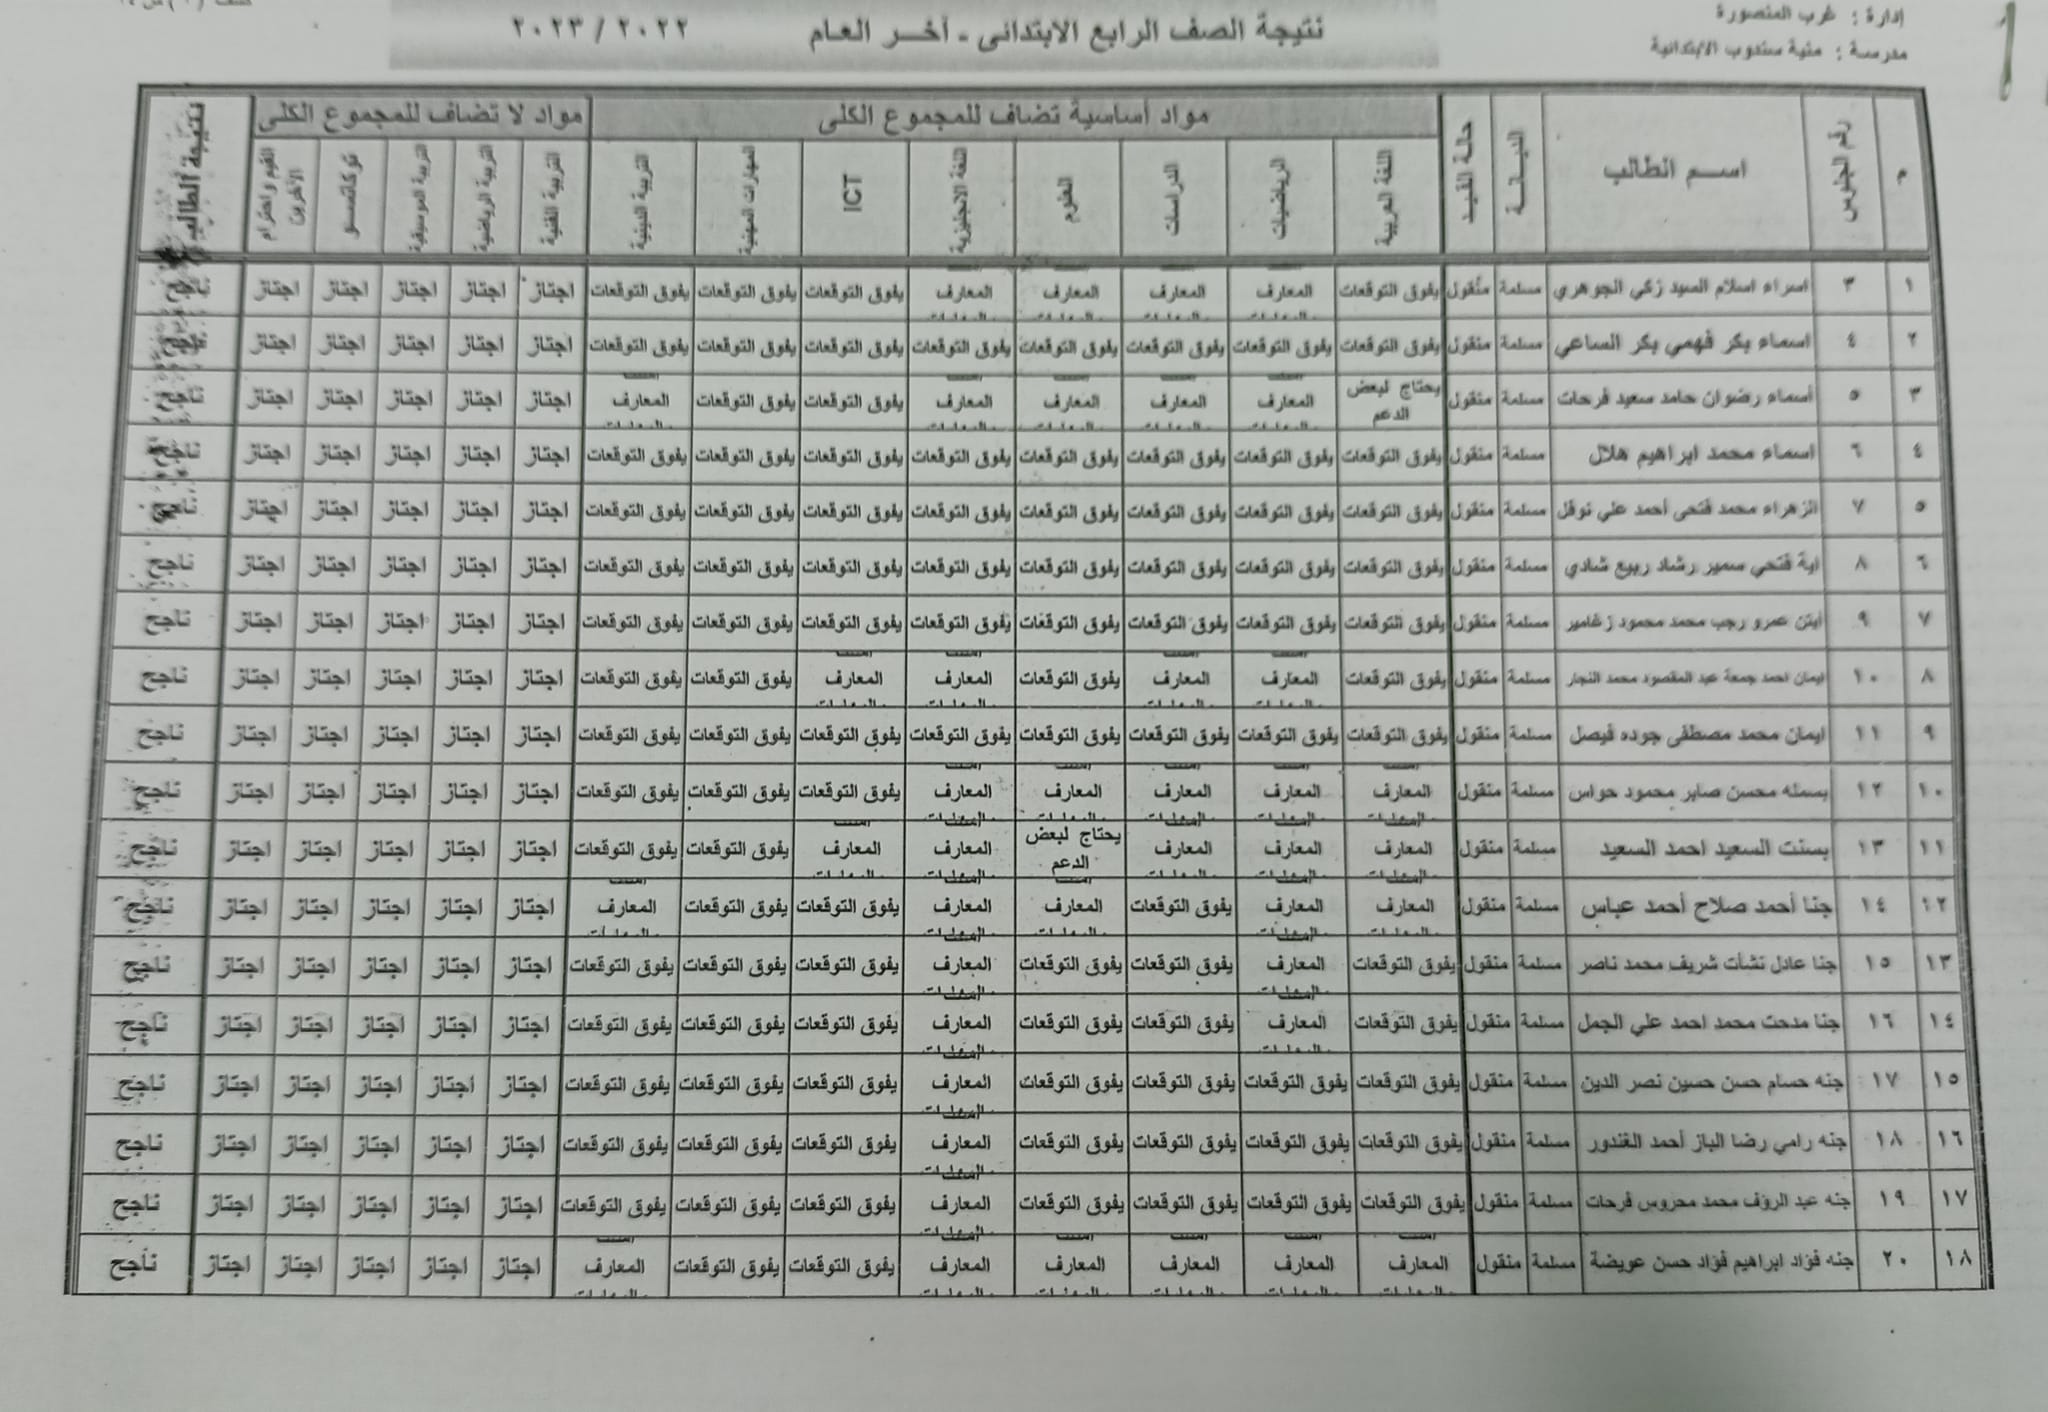 إدارة : غرب المنصورة
مدرسة : منية سندوب الابتدائية
نتيجة الصف الرابع الابتدائى - آخر العام ٢٠٢٢ / ٢٠٢٣
م رقم الجلوس اسم الطالب الديانة حالة القيد مواد أساسية تضاف للمجموع الكلى مواد لا تضاف للمجموع الكلى نتيجة الطالب
اللغة العربية الرياضيات الدراسات العلوم اللغة الانجليزية ICT المهارات المهنية التربية الدينية التربية الفنية التربية الرياضية التربية الموسيقية توكاتسو القيم واحترام الآخرين
١ ٣ اسراء اسلام السيد زكي الجوهري مسلمة منقول يفوق التوقعات المعارف المعارف المعارف المعارف يفوق التوقعات يفوق التوقعات يفوق التوقعات اجتاز اجتاز اجتاز اجتاز اجتاز ناجح
٢ ٤ اسماء بكر فهمي بكر الساعي مسلمة منقول يفوق التوقعات يفوق التوقعات يفوق التوقعات يفوق التوقعات يفوق التوقعات يفوق التوقعات يفوق التوقعات يفوق التوقعات اجتاز اجتاز اجتاز اجتاز اجتاز ناجح
٣ ٥ أسماء رضوان حامد سعيد فرحات مسلمة منقول يحتاج لبعض الدعم المعارف المعارف المعارف المعارف يفوق التوقعات يفوق التوقعات المعارف اجتاز اجتاز اجتاز اجتاز اجتاز ناجح
٤ ٦ اسماء محمد ابراهيم هلال مسلمة منقول يفوق التوقعات يفوق التوقعات يفوق التوقعات يفوق التوقعات يفوق التوقعات يفوق التوقعات يفوق التوقعات يفوق التوقعات اجتاز اجتاز اجتاز اجتاز اجتاز ناجح
٥ ٧ الزهراء محمد فتحى أحمد علي نوفل مسلمة منقول يفوق التوقعات يفوق التوقعات يفوق التوقعات يفوق التوقعات يفوق التوقعات يفوق التوقعات يفوق التوقعات يفوق التوقعات اجتاز اجتاز اجتاز اجتاز اجتاز ناجح
٦ ٨ اية فتحي سمير رشاد ربيع شادي مسلمة منقول يفوق التوقعات يفوق التوقعات يفوق التوقعات يفوق التوقعات يفوق التوقعات يفوق التوقعات يفوق التوقعات يفوق التوقعات اجتاز اجتاز اجتاز اجتاز اجتاز ناجح
٧ ٩ أيتن عمرو رجب محمد محمود زغامير مسلمة منقول يفوق التوقعات يفوق التوقعات يفوق التوقعات يفوق التوقعات يفوق التوقعات يفوق التوقعات يفوق التوقعات يفوق التوقعات اجتاز اجتاز اجتاز اجتاز اجتاز ناجح
٨ ١٠ ايمان احمد جمعة عبد المقصود محمد النجار مسلمة منقول يفوق التوقعات المعارف المعارف يفوق التوقعات المعارف المعارف يفوق التوقعات يفوق التوقعات اجتاز اجتاز اجتاز اجتاز اجتاز ناجح
٩ ١١ ايمان محمد مصطفى جوده فيصل مسلمة منقول يفوق التوقعات يفوق التوقعات يفوق التوقعات يفوق التوقعات يفوق التوقعات يفوق التوقعات يفوق التوقعات يفوق التوقعات اجتاز اجتاز اجتاز اجتاز اجتاز ناجح
١٠ ١٢ بسمله محسن صابر محمود حواس مسلمة منقول المعارف المعارف المعارف المعارف المعارف يفوق التوقعات يفوق التوقعات يفوق التوقعات اجتاز اجتاز اجتاز اجتاز اجتاز ناجح
١١ ١٣ بسنت السعيد احمد السعيد مسلمة منقول المعارف المعارف المعارف يحتاج لبعض الدعم المعارف المعارف يفوق التوقعات يفوق التوقعات اجتاز اجتاز اجتاز اجتاز اجتاز ناجح
١٢ ١٤ جنا أحمد صلاح أحمد عباس مسلمة منقول المعارف المعارف يفوق التوقعات المعارف المعارف يفوق التوقعات يفوق التوقعات المعارف اجتاز اجتاز اجتاز اجتاز اجتاز ناجح
١٣ ١٥ جنا عادل نشأت شريف محمد ناصر مسلمة منقول يفوق التوقعات المعارف يفوق التوقعات يفوق التوقعات المعارف يفوق التوقعات يفوق التوقعات يفوق التوقعات اجتاز اجتاز اجتاز اجتاز اجتاز ناجح
١٤ ١٦ جنا مدحت محمد احمد علي الجمل مسلمة منقول يفوق التوقعات المعارف يفوق التوقعات يفوق التوقعات المعارف يفوق التوقعات يفوق التوقعات يفوق التوقعات اجتاز اجتاز اجتاز اجتاز اجتاز ناجح
١٥ ١٧ جنه حسام حسن حسين نصر الدين مسلمة منقول يفوق التوقعات يفوق التوقعات يفوق التوقعات يفوق التوقعات المعارف يفوق التوقعات يفوق التوقعات يفوق التوقعات اجتاز اجتاز اجتاز اجتاز اجتاز ناجح
١٦ ١٨ جنه رامي رضا الباز أحمد الغندور مسلمة منقول يفوق التوقعات يفوق التوقعات يفوق التوقعات يفوق التوقعات المعارف يفوق التوقعات يفوق التوقعات يفوق التوقعات اجتاز اجتاز اجتاز اجتاز اجتاز ناجح
١٧ ١٩ جنه عبد الرؤف محمد محروس فرحات مسلمة منقول يفوق التوقعات يفوق التوقعات يفوق التوقعات يفوق التوقعات المعارف يفوق التوقعات يفوق التوقعات يفوق التوقعات اجتاز اجتاز اجتاز اجتاز اجتاز ناجح
١٨ ٢٠ جنه فؤاد ابراهيم فؤاد حسن عويضة مسلمة منقول المعارف المعارف المعارف المعارف المعارف يفوق التوقعات يفوق التوقعات المعارف اجتاز اجتاز اجتاز اجتاز اجتاز ناجح